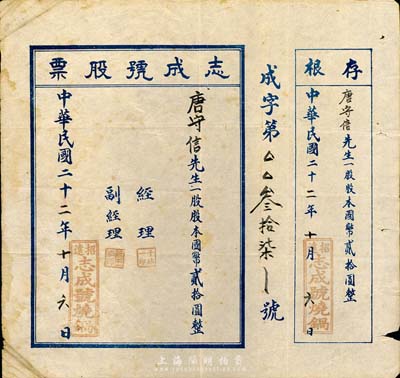 存根
唐守信先生一股股本國幣貳拾圓整
中華民國二十二年十月六日
志成號燒鍋
成字第〇〇叁拾柒號
志成號股票
唐守信先生一股股本國幣貳拾圓整
經理
副經理
中華民國二十二年十月六日
志成號燒鍋
上海陽明拍賣